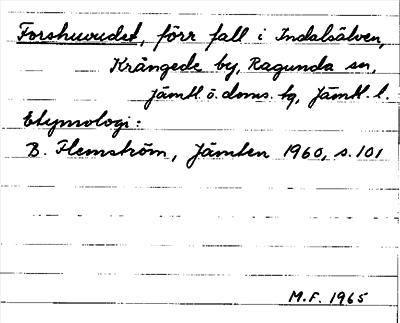 Forshuvudet, förr fall i Indalsälven,
Krångede by, Ragunda sn,
Jämtl. ö. doms. tg, Jämtl. l.
Etymologi:
B. Flemström, Jämten 1960, s. 101
M.F. 1965